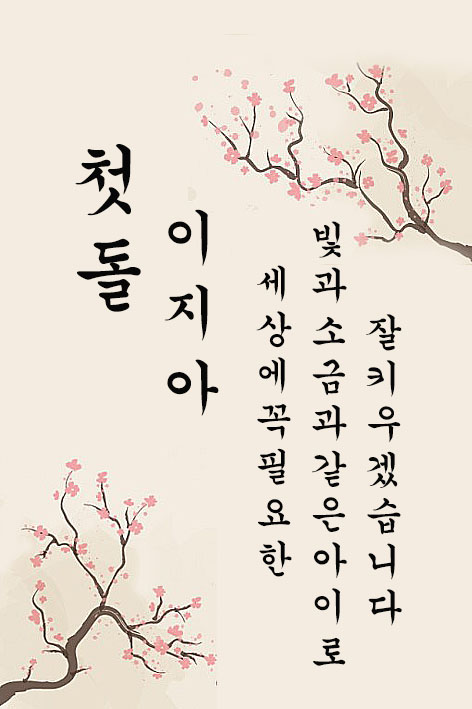 첫돌
이지아
세상에꼭필요한
빛과소금과같은아이로
잘키우겠습니다